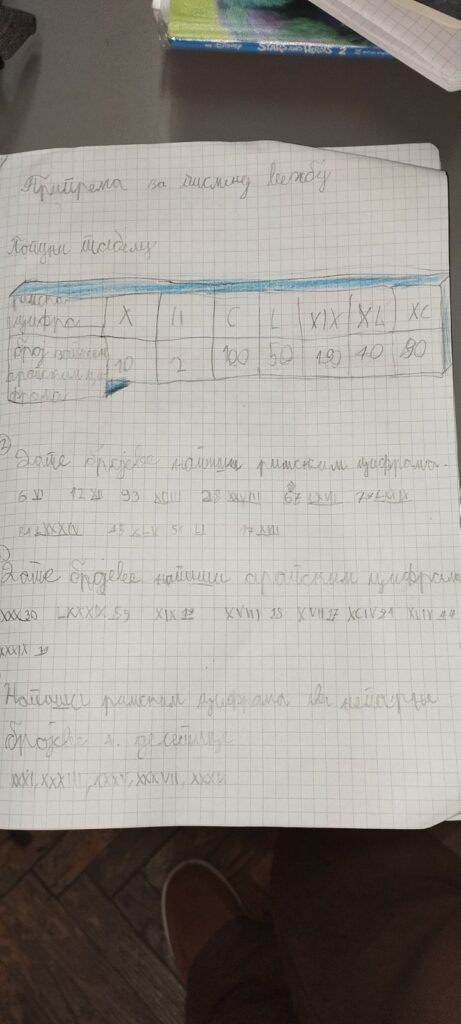 STARS AND HEROES 2
Припрема за писмену вежбу
Попуни табелу
римска
цифра X II C L XIX XL XC
број записан
арапским ци-
фрама 10 2 100 50 190 40 90
Дате бројеве напиши римским цифрама.
6 VI 12 XII 93 XCIII 28 XXVIII 67 LXVII
45 XLV 51 LI 17 XVII
Дате бројеве напиши арапским цифрама
XXX 30 LXXXIX 59 XIX XVIII 18 XVII 17 XCIV 94 XLIV 44
XXXIX
Напиши римским цифрама све непарне
бројеве 4. десетице
XXXI, XXXIII, XXXV, XXXVII,